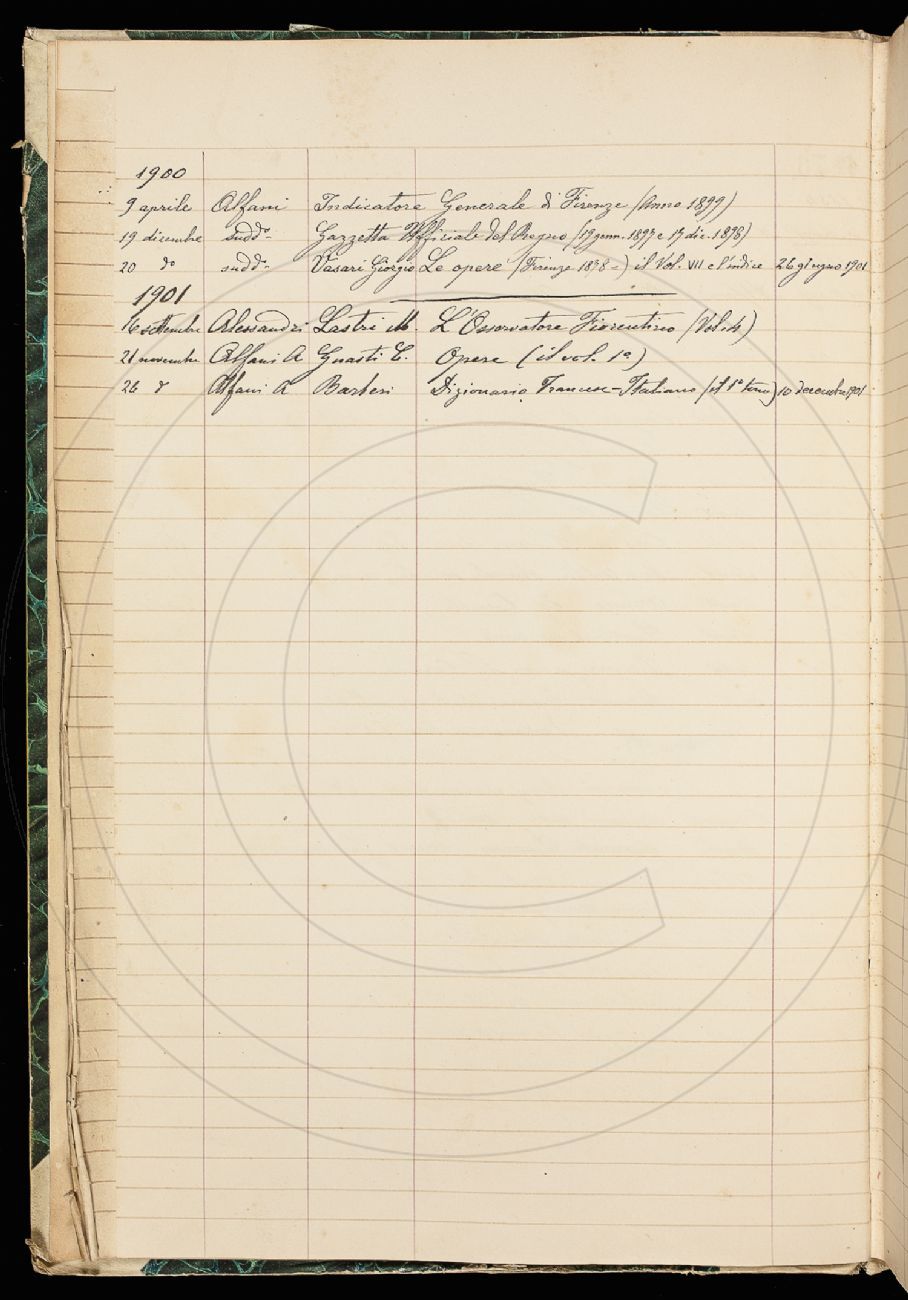 1900
9 aprile Alfani Indicatore Generale di Firenze (Anno 1899)
19 dicembre sudd.º Gazzetta Ufficiale del Regno (19 genn. 1897 e 17 dic. 1898)
20 dº sudd.º Vasari Giorgio Le opere (Firenze 1878-) il Vol. VII e l'indice 26 giugno 1901
1901
16 settembre Alessandri Lastri M. L'Osservatore Fiorentino (Vol. 4)
21 novembre Alfani A Guasti C. Opere (il vol. 1º)
26 dº Alfani A Barberi Dizionario Francese-Italiano (il 1º tomo) 10 decembre 1901